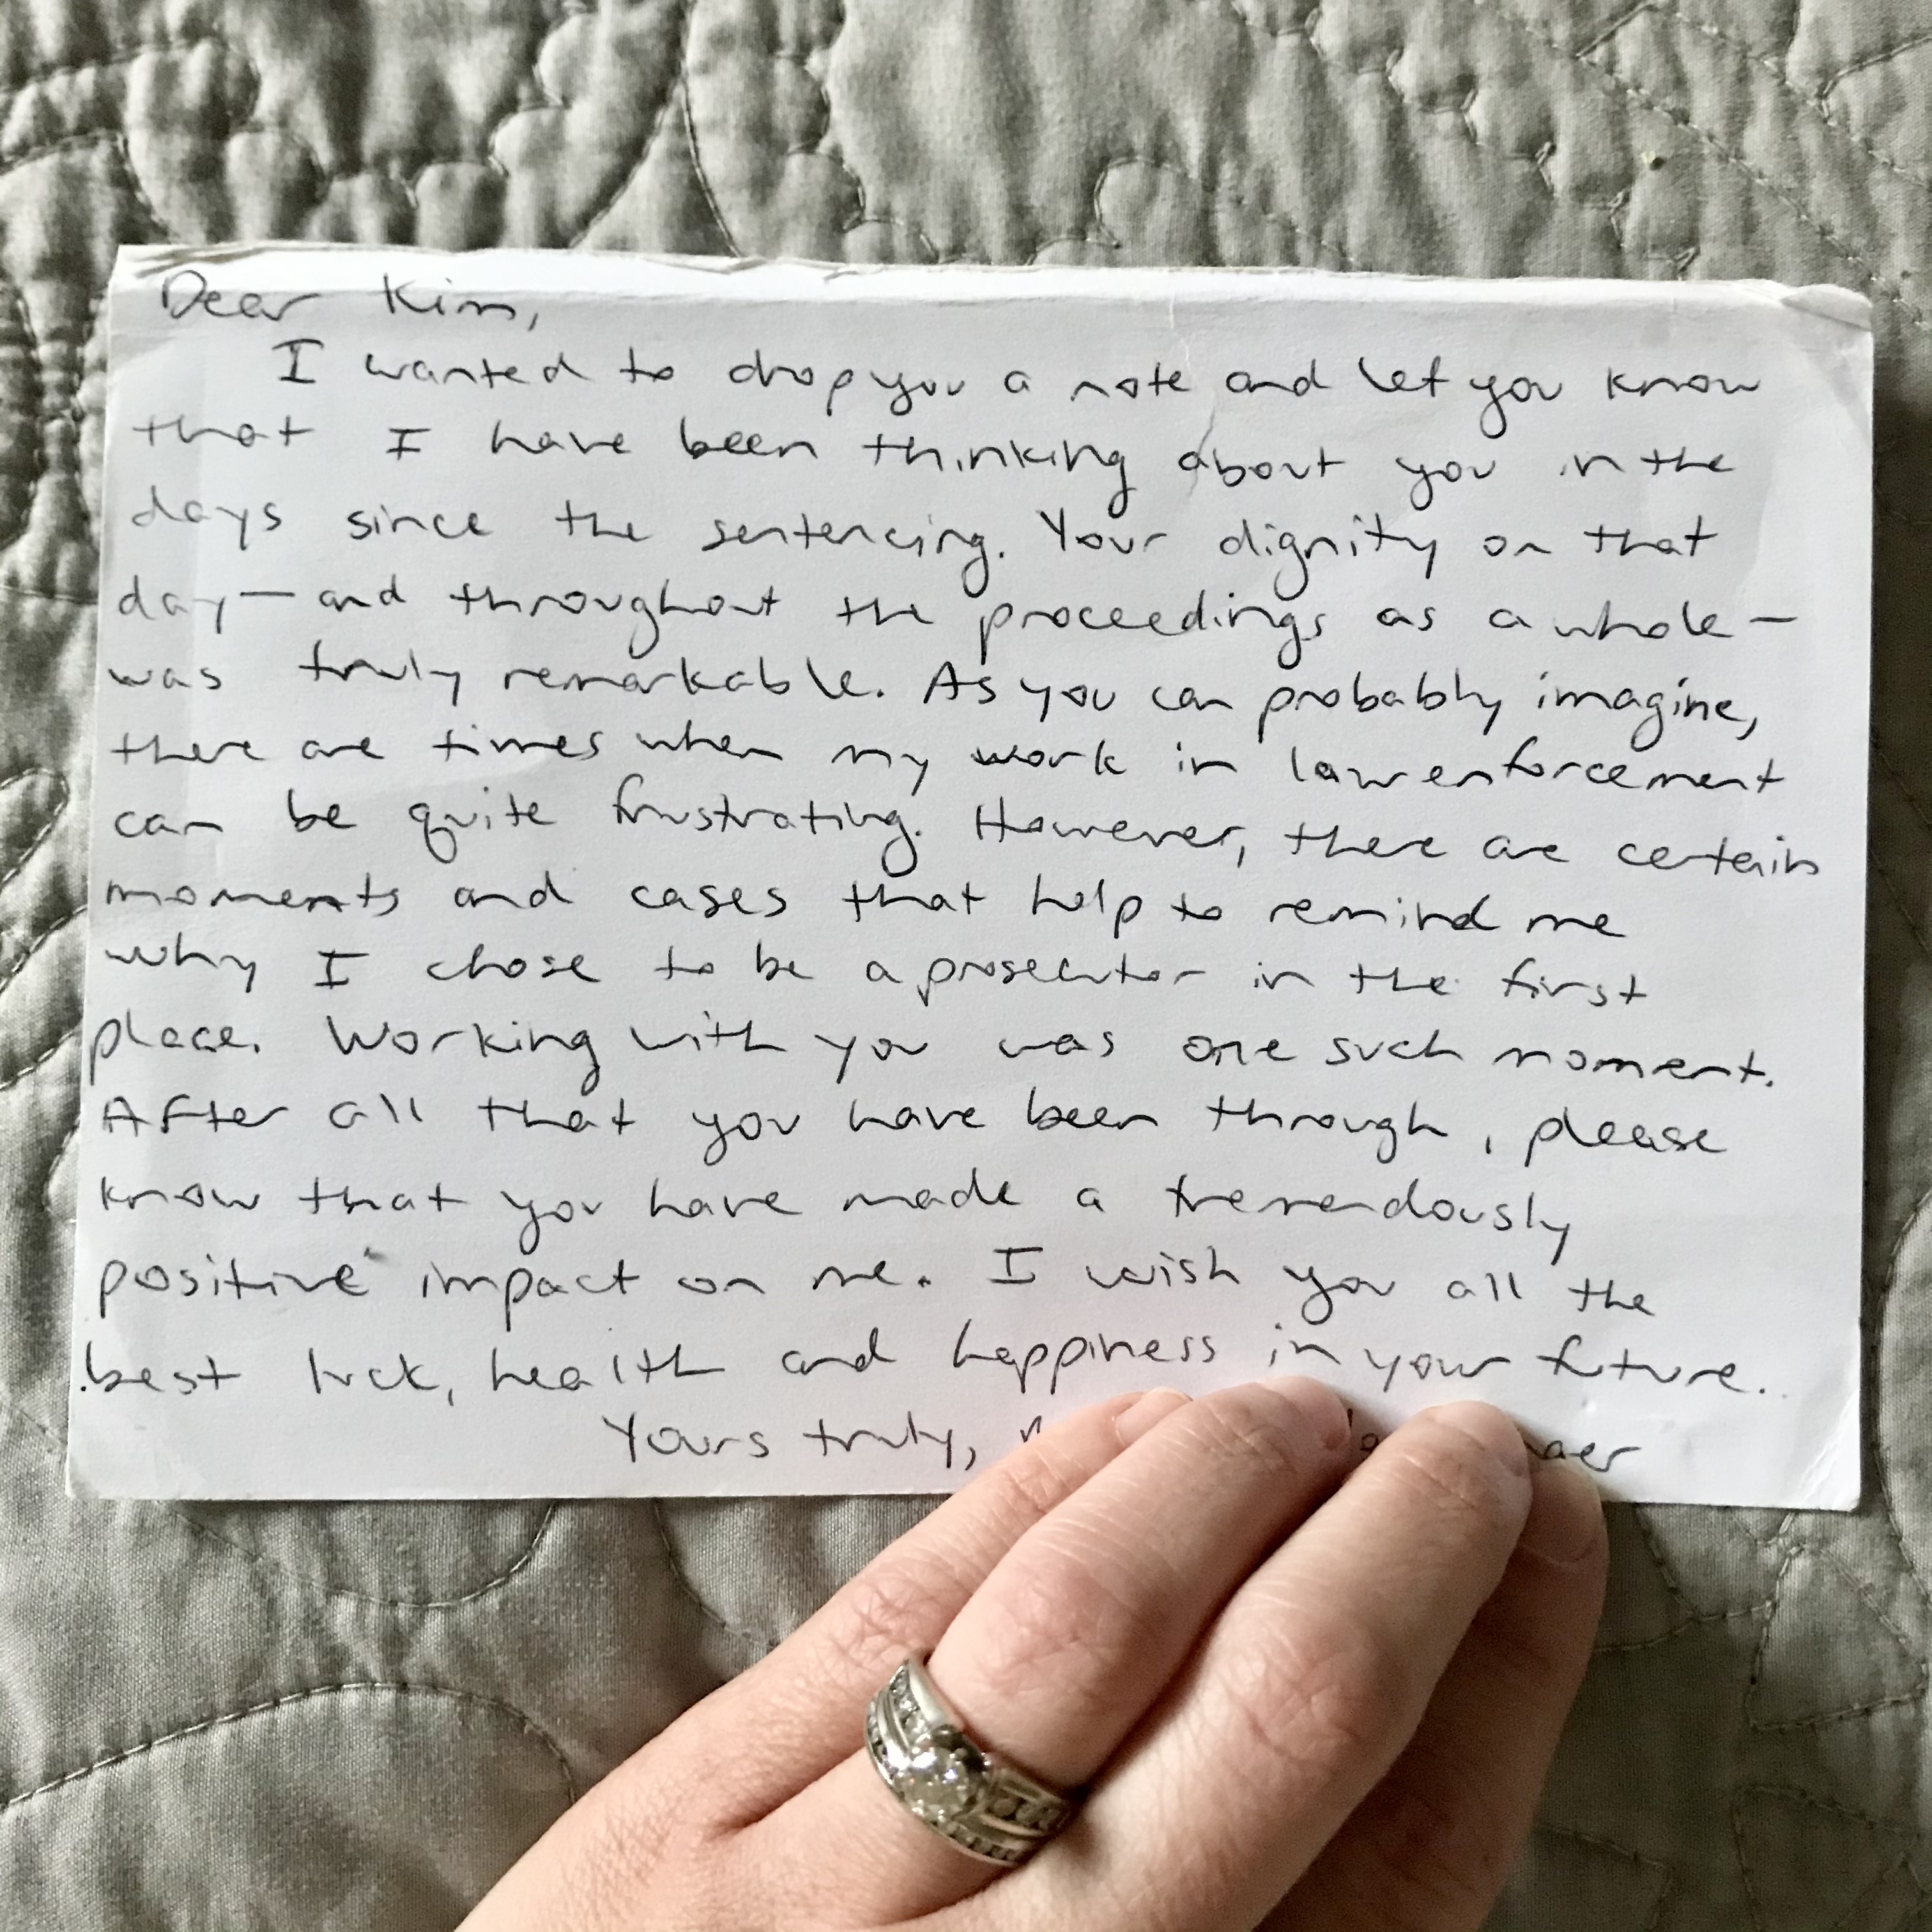 Dear Kim,
I wanted to drop you a note and let you know
that I have been thinking about you in the
days since the sentencing. Your dignity on that
day—and throughout the proceedings as a whole—
was truly remarkable. As you can probably imagine,
there are times when my work in law enforcement
can be quite frustrating. However, there are certain
moments and cases that help to remind me
why I chose to be a prosecutor in the first
place. Working with you was one such moment.
After all that you have been through, please
know that you have made a tremendously
positive impact on me. I wish you all the
best luck, health and happiness in your future.
Yours truly,